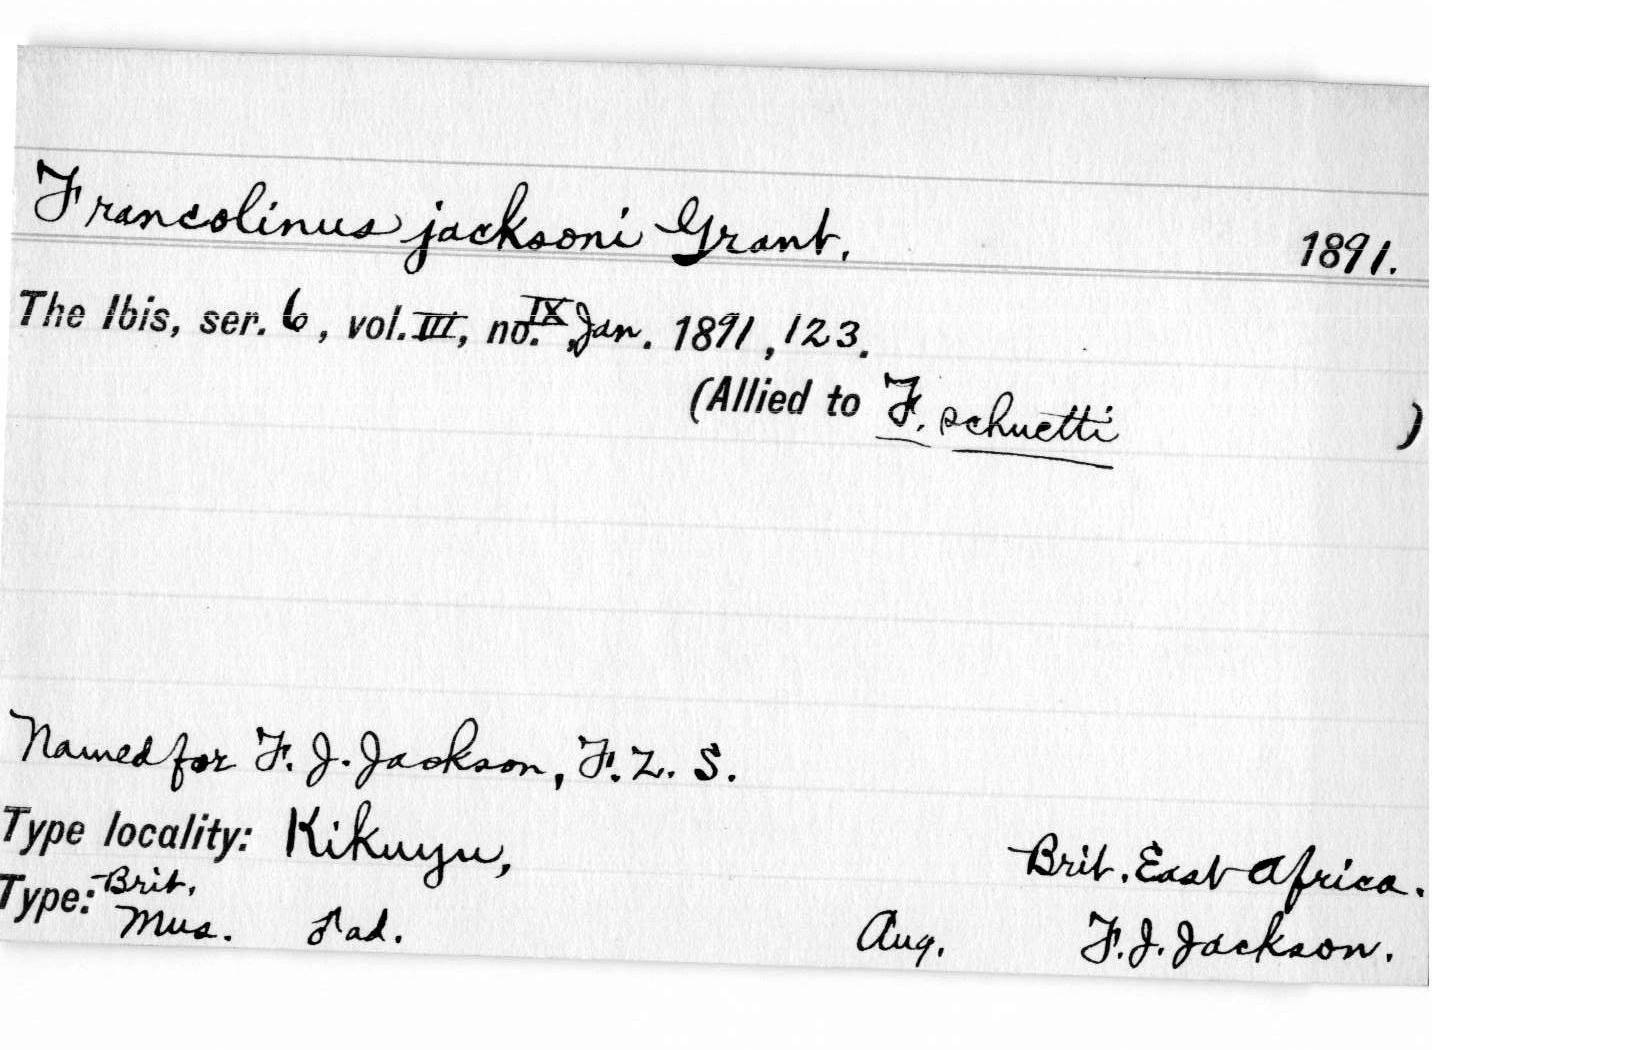 Francolinus jacksoni Grant. 1891.
The Ibis, ser. 6, vol. III, no. IX, Jan. 1891, 123.
(Allied to F. schuetti )
Named for F. J. Jackson, F. Z. S.
Type locality: Kikuyu, Brit. East Africa.
Type: Brit. Mus. ♂ ad. Aug. F. J. Jackson.